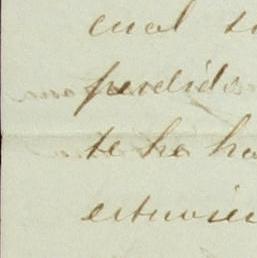 cual
perdid
te ha ha
estuvie